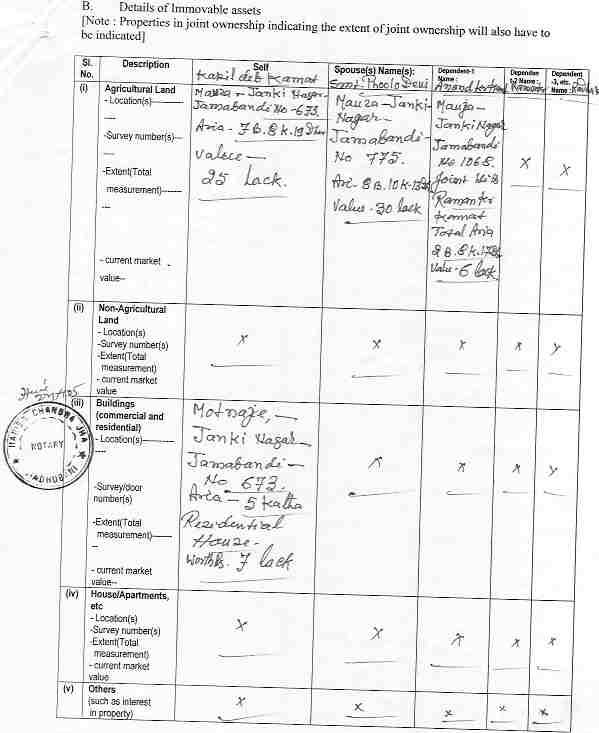 B. Details of Immovable assets
[Note : Properties in joint ownership indicating the extent of joint ownership will also have to
be indicated]
Sl. No. Description Self Spouse(s) Name(s): Dependent-1 Name : Dependen t-2 Name : Dependent -3, etc. Name :
Kapil deb Kamat
Smt. Phoolo Devi
(i) Agricultural Land
- Location(s)-----
----
-Survey number(s)--
----
-Extent(Total
measurement)-------
---
- current market
value--
Mauza - Janki Nagar-
Jamabandi No - 673.
Aria - 7 B. 8 K. 19 Dhur
Value -
25 lack.
Mauza - Janki-
Nagar-
Jamabandi-
No 775.
Ari- 8 B. 10 K-
Value - 30 lack
Mauza-
Janki Nagar
Jamabandi
No 1068.
Joint With
Raman Kr
Kamat
Total Aria
2 B. 8 K.
Value - 6 lack
X
X
(ii) Non-Agricultural
Land
- Location(s)
-Survey number(s)
-Extent(Total
measurement)
- current market
value
X X X X X
(iii) Buildings
(commercial and
residential)
- Location(s)-----------
----
-Survey/door
number(s)
-Extent(Total
measurement)-------
--
- current market
value--
Janki Nagar-
Jamabandi-
No 673.
Aria - 5 Katha
Residential
House-
Worth Rs. 7 lack
X X X X
NOTARY
CHANDRA JHA
MADHUBANI
(iv) House/Apartments,
etc
- Location(s)
-Survey number(s)
-Extent(Total
measurement)
- current market
value
X X X X X
(v) Others
(such as interest
in property)
X X X X X